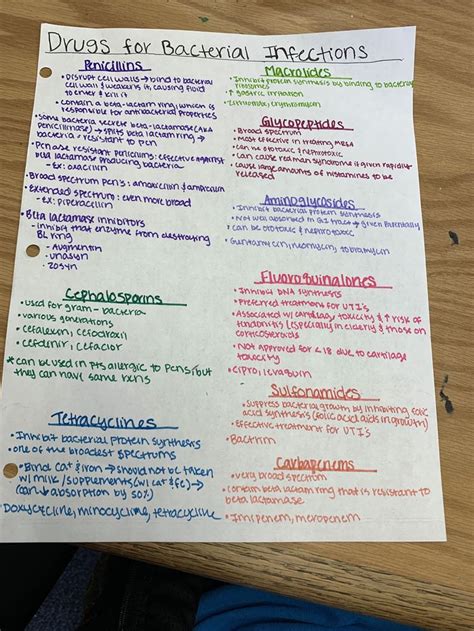 Drugs for Bacterial Infections
Penicillins
• Disrupt cell walls → bind to bacterial
cell wall & weakens it, causing fluid
to enter & kill it
• contain a beta-lactam ring, which is
responsible for antibacterial properties
• Some bacteria secrete beta-lactamase (AKA
penicillinase) → splits beta lactam ring →
bacteria → resistant to pcn
• Pcnase resistant penicillins: effective against
beta lactamase producing bacteria
- Ex: oxacillin
• Broad spectrum pen's: amoxicillin & ampicillin
• Extended spectrum: even more broad
- Ex: piperacillin
• Beta lactamase inhibitors
- inhibit that enzyme from destroying
BL ring
- Augmentin
- unasyn
- zosyn
Cephalosporins
• used for gram - bacteria
• various generations
• cefalexin, cefadroxil
• cefdenir, cefaclor
*can be used in pts allergic to pens, but
they can have same rxns
Tetracyclines
• Inhibit bacterial protein synthesis
• one of the broadest spectrums
• Bind Ca+ & iron → should not be taken
w/ milk / supplements (w/ Ca+ & fe) →
(can ↓ absorption by 50%)
Doxycycline, minocycline, tetracycline
Macrolides
• Inhibit protein synthesis by binding to bacterial
ribosomes
• ↑ gastric irritation
• erythromycin
Glycopeptides
• Broad spectrum
• most effective in treating MRSA
• can be ototoxic / nephrotoxic
• Can cause red man syndrome if given rapidly
• cause large amounts of histamines to be
released
Aminoglycosides
• Inhibit bacterial protein synthesis
• Not well absorbed in GI tract → given Parenterally
• can be ototoxic & nephrotoxic
• Gentamicin, neomycin, tobramycin
Fluoroquinalones
• Inhibit DNA synthesis
• Preferred treatment for UTI's
• Associated w/ cartilage toxicity & ↑ risk of
tendonitis (especially in elderly & those on
corticosteroids
• Not approved for <18 due to cartilage
toxicity
• cipro, levaquin
Sulfonamides
• Suppress bacterial growth by inhibiting folic
acid synthesis (folic acid aids in growth)
• Effective treatment for UTI's
• Bactrim
Carbapenems
• very broad spectrum
• contain beta lactam ring that is resistant to
beta lactamase
• Imipenem, meropenem